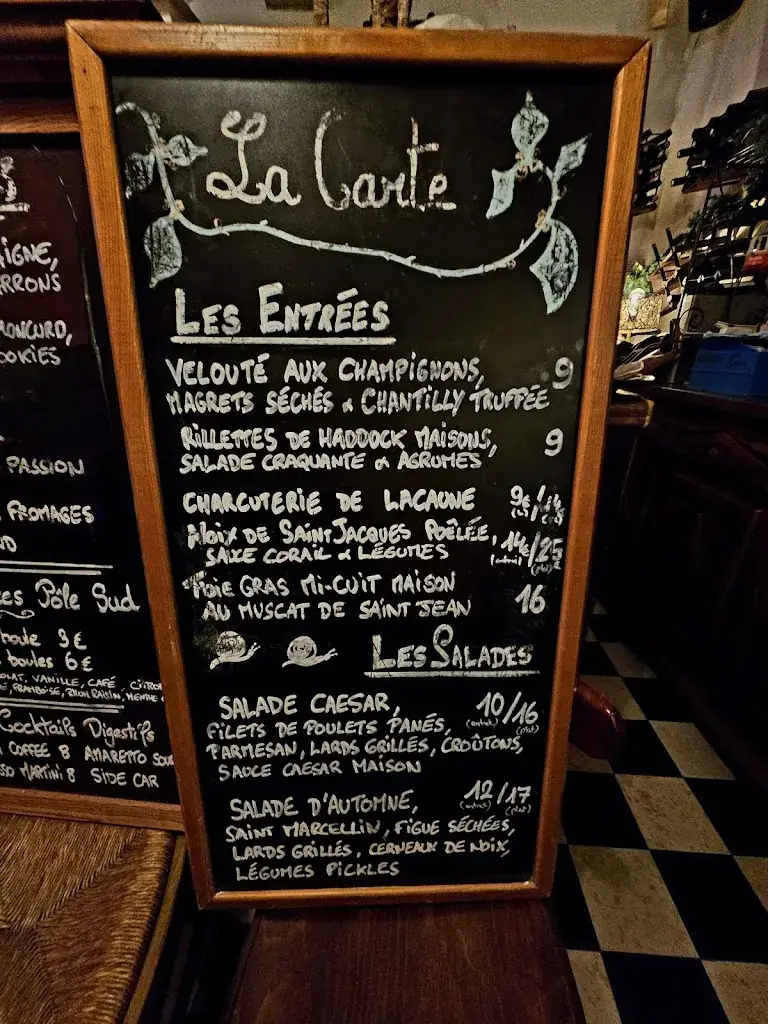 La Carte
LES ENTRÉES
VELOUTÉ AUX CHAMPIGNONS, 9
MAGRETS SÉCHÉS & CHANTILLY TRUFFÉE
RILLETTES DE HADDOCK MAISONS, 9
SALADE CRAQUANTE & AGRUMES
CHARCUTERIE DE LACAUNE 9€/14
NOIX DE SAINT JACQUES POÊLÉE, 14€/25
SAUCE CORAIL & LÉGUMES (entrée) (plat)
FOIE GRAS MI-CUIT MAISON
AU MUSCAT DE SAINT JEAN 16
LES SALADES
SALADE CAESAR, 10/16
FILETS DE POULETS PANÉS, (entrée) (plat)
PARMESAN, LARDS GRILLÉS, CROÛTONS,
SAUCE CAESAR MAISON
SALADE D'AUTOMNE, 12/17
(entrée) (plat)
SAINT MARCELLIN, FIGUE SÉCHÉES,
LARDS GRILLÉS, CERNEAUX DE NOIX,
LÉGUMES PICKLES
AIGNE,
RRONS
OOKIES
PASSION
FROMAGES
ces Pôle Sud
boule 3€
boules 6€
OLAT, VANILLE, CAFÉ, CITRON
FRAMBOISE, RHUM RAISIN, MENTHE
Cocktails Digestifs
COFFEE 8 AMARETTO SOU
SO MARTINI 8 SIDE CAR